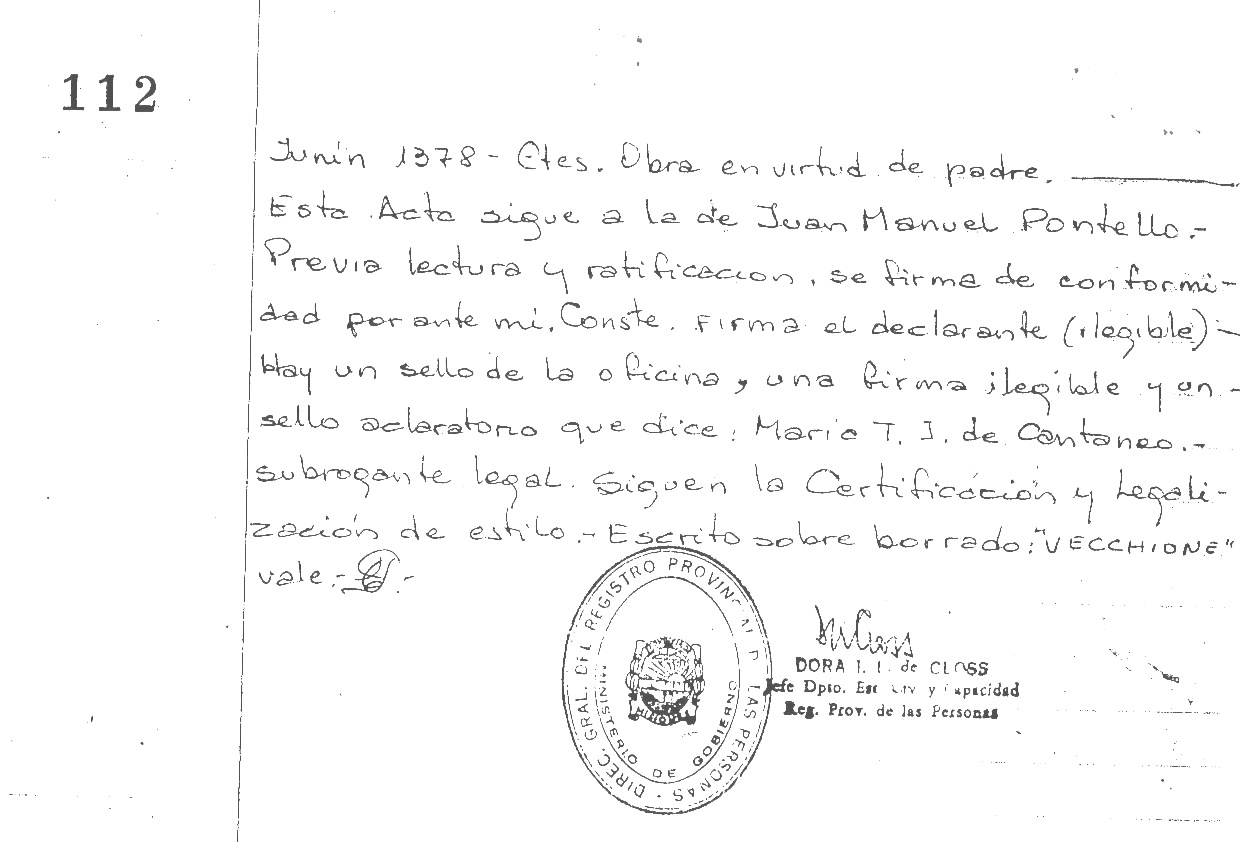 112
Junín 1378 - Ctes. Obra en virtud de padre.
Esta Acta sigue a la de Juan Manuel Pontello.-
Previa lectura y ratificacion, se firma de conformi-
dad por ante mi. Conste. Firma el declarante (ilegible)-
Hay un sello de la oficina, una firma ilegible y un -
sello aclaratorio que dice: Maria T. J. de Cantaneo.-
subrogante legal. Siguen la Certificación y Legali-
zación de estilo.- Escrito sobre borrado: "VECCHIONE"
vale.-
DIREC. GRAL. DEL REGISTRO PROVINCIAL D LAS PERSONAS -
MINISTERIO DE GOBIERNO
DORA I. de
Jefe Dpto. y Capacidad
Reg. Prov. de las Personas